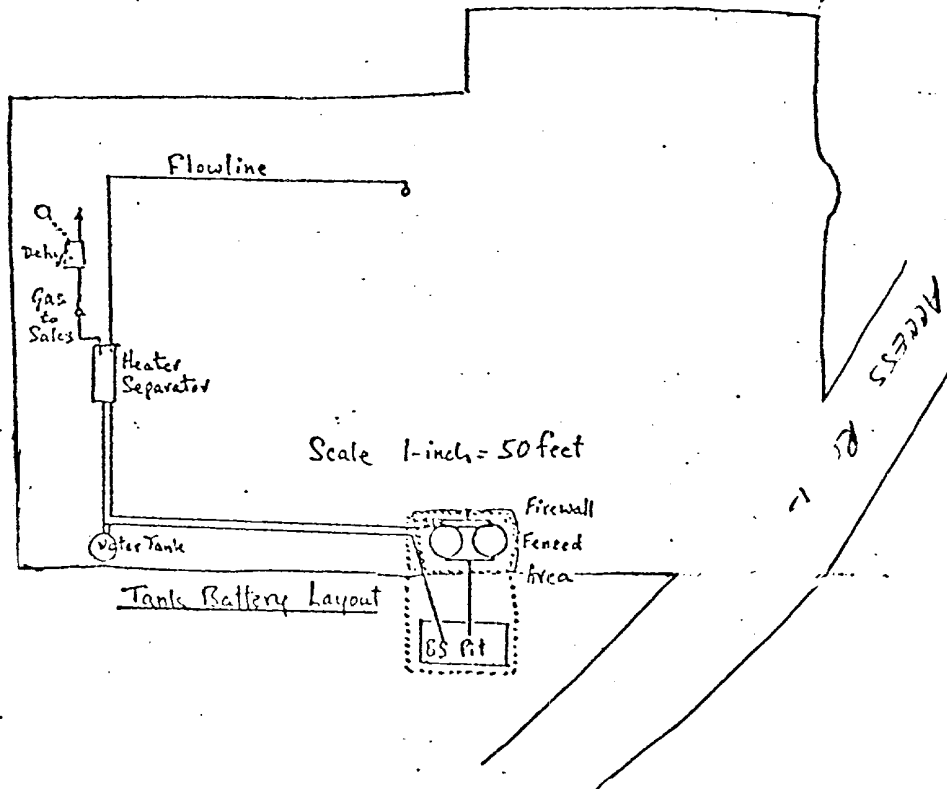 Flowline
Dehy.
Gas
to
Sales
Heater
Separator
Scale 1-inch = 50 feet
Firewall
Fenced
Area
Water Tank
Tank Battery Layout
Pit
ACCESS